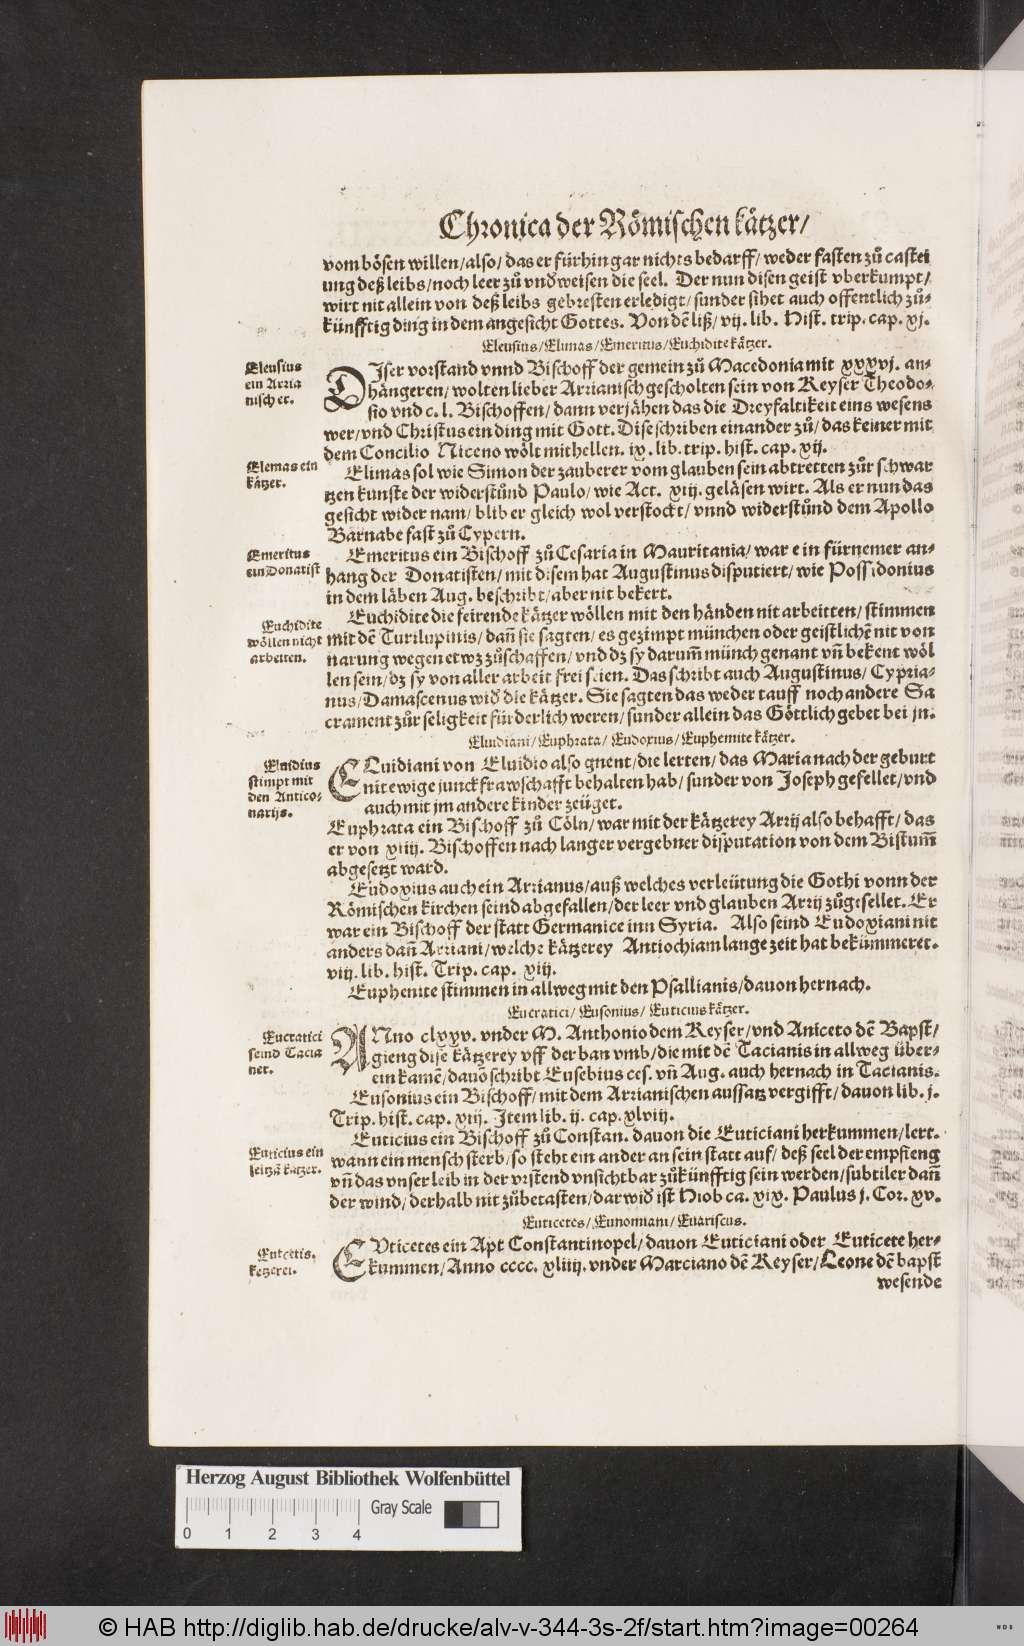 Chronica der Römischen kåtzer/
vom bösen willen/also/ das er fürhin gar nichts bedarff/ weder fasten zů castei
ung deß leibs/noch leer zů vnd̕weisen die seel. Der nun disen geist vberkumpt/
wirt nit allein von deß leibs gebresten erledigt/ sunder sihet auch offentlich zů⸗
künfftig ding in dem angesicht Gottes. Von dē liß/ vij. lib. Hist. trip. cap. xj.
Eleusius/Elimas/Emeritus/Euchidite kåtzer.
Eleusius
ein Arria
nischer.
DIser vorstand vnnd Bischoff der gemein zů Macedonia mit xxxvj. an⸗
hängeren/ wolten lieber Arrianisch gescholten sein von Keyser Theodo⸗
sio vnd c. l. Bischoffen/ dann verjåhen das die Dreyfaltikeit eins wesens
wer/vnd Christus ein ding mit Gott. Dise schriben einander zů/ das keiner mit
dem Concilio Niceno wölt mithellen. ix. lib. trip. hist. cap. xij.
Elemas ein
kåtzer.
Elimas sol wie Simon der zauberer vom glauben sein abtretten zůr schwar
tzen kunst⸗ der widerstůnd Paulo/ wie Act. xiij. geläsen wirt. Als er nun das
gesicht wider nam/ blib er gleich wol verstockt/ vnnd widerstůnd dem Apollo
Barnabe fast zů Cypern.
Emeritus
ein Donatist
Emeritus ein Bischoff zů Cesaria in Mauritania/ war ein fürnemer an⸗
hang der Donatisten/ mit disem hat Augustinus disputiert/ wie Possidonius
in dem läben Aug. beschribt/ aber nit bekert.
Euchidite
wöllen nicht
arbeiten.
Euchidite die feirende kåtzer wöllen mit den händen nit arbeitten/ stimmen
mit dē Turilupinis/ dañ sie sagten/ es gezimpt münchen oder geistlichē nit von
narung wegen etwz zůschaffen/ vnd dz sy darum̄ münch genant vñ bekent wöl
len sein/ dz sy von aller arbeit frei seien. Das schribt auch Augustinus/ Cypria⸗
nus/Damascenus wid̕ die kåtzer. Sie sagten das weder tauff noch andere Sa
crament zůr seligkeit fürderlich weren/ sunder allein das Göttlich gebet bei jn.
Eluidiani/Euphrata/ Eudoxius/Euphemite kåtzer.
Eluidius
stimpt mit
den Antico⸗
narijs.
ELuidiani von Eluidio also gnent/die lerten/ das Maria nach der geburt
nit ewige junckfrawschafft behalten hab/ sunder von Joseph gesellet/vnd
auch mit jm andere kinder zeüget.
Euphrata ein Bischoff zů Cöln/ war mit der kåtzerey Arrij also behafft/ das
er von xiiij. Bischoffen nach langer vergebner disputation von dem Bistum̄
abgesetzt ward.
Eudoxius auch ein Arrianus/auß welches verleütung die Gothi vonn der
Römischen kirchen seind abgefallen/der leer vnd glauben Arrij zůgesellet. Er
war ein Bischoff der statt Germanice inn Syria. Also seind Eudoxiani nit
anders dañ Arriani/welche kåtzerey Antiochiam lange zeit hat bekümmeret.
viij. lib. hist. Trip. cap. xiij.
Euphemite stimmen in allweg mit den Psallianis/dauon hernach.
Eucratici/ Eusonius/ Euticius kåtzer.
Eucratici
seind Tacia
ner.
ANno clxxv. vnder M. Anthonio dem Keyser/vnd Aniceto dē Bapst/
gieng dise kåtzerey vff der ban vmb/die mit dē Tacianis in allweg über⸗
ein kamē/dauō schribt Eusebius ces. vñ Aug. auch hernach in Tacianis.
Eusonius ein Bischoff/ mit dem Arrianischen aussatz vergifft/ dauon lib. j.
Trip. hist. cap. xiij. Item lib. ij. cap. xlviij.
Euticius ein
seltzā katzer.
Euticius ein Bischoff zů Constan. dauon die Euticiani herkummen/lert.
wann ein mensch sterb/so steht ein ander an sein statt auf/ deß seel der empfieng
vñ das vnser leib in der vrstend vnsichtbar zůkünfftig sein werden/subtiler dañ
der wind/ derhalb nit zůbetasten/dar wid̕ ist Hiob ca. xix. Paulus j. Cor. xv.
Euticetes/Eunomiani/ Euariscus.
Eutcetis.
ketzerei.
EVticetes ein Apt Constantinopel/dauon Euticiani oder Euticete her⸗
kummen/Anno cccc. xliiij. vnder Marciano dē Keyser/Leone dē bapst
wesende
Herzog August Bibliothek Wolfenbüttel
Gray Scale
0 1 2 3 4
© HAB http://diglib.hab.de/drucke/alv-v-344-3s-2f/start.htm?image=00264